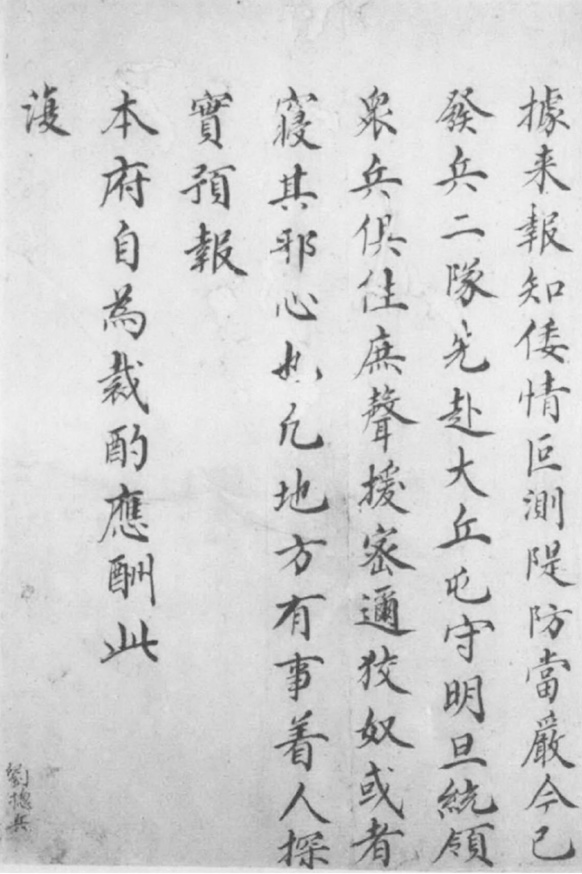 據来報知倭情叵測隄防當嚴今已
發兵二隊先赴大丘屯守明旦統領
衆兵俱往庶聲援密邇狡奴或者
寢其邪心也凡地方有事着人探
實預報
本府自為裁酌應酬此
復
劉摠兵